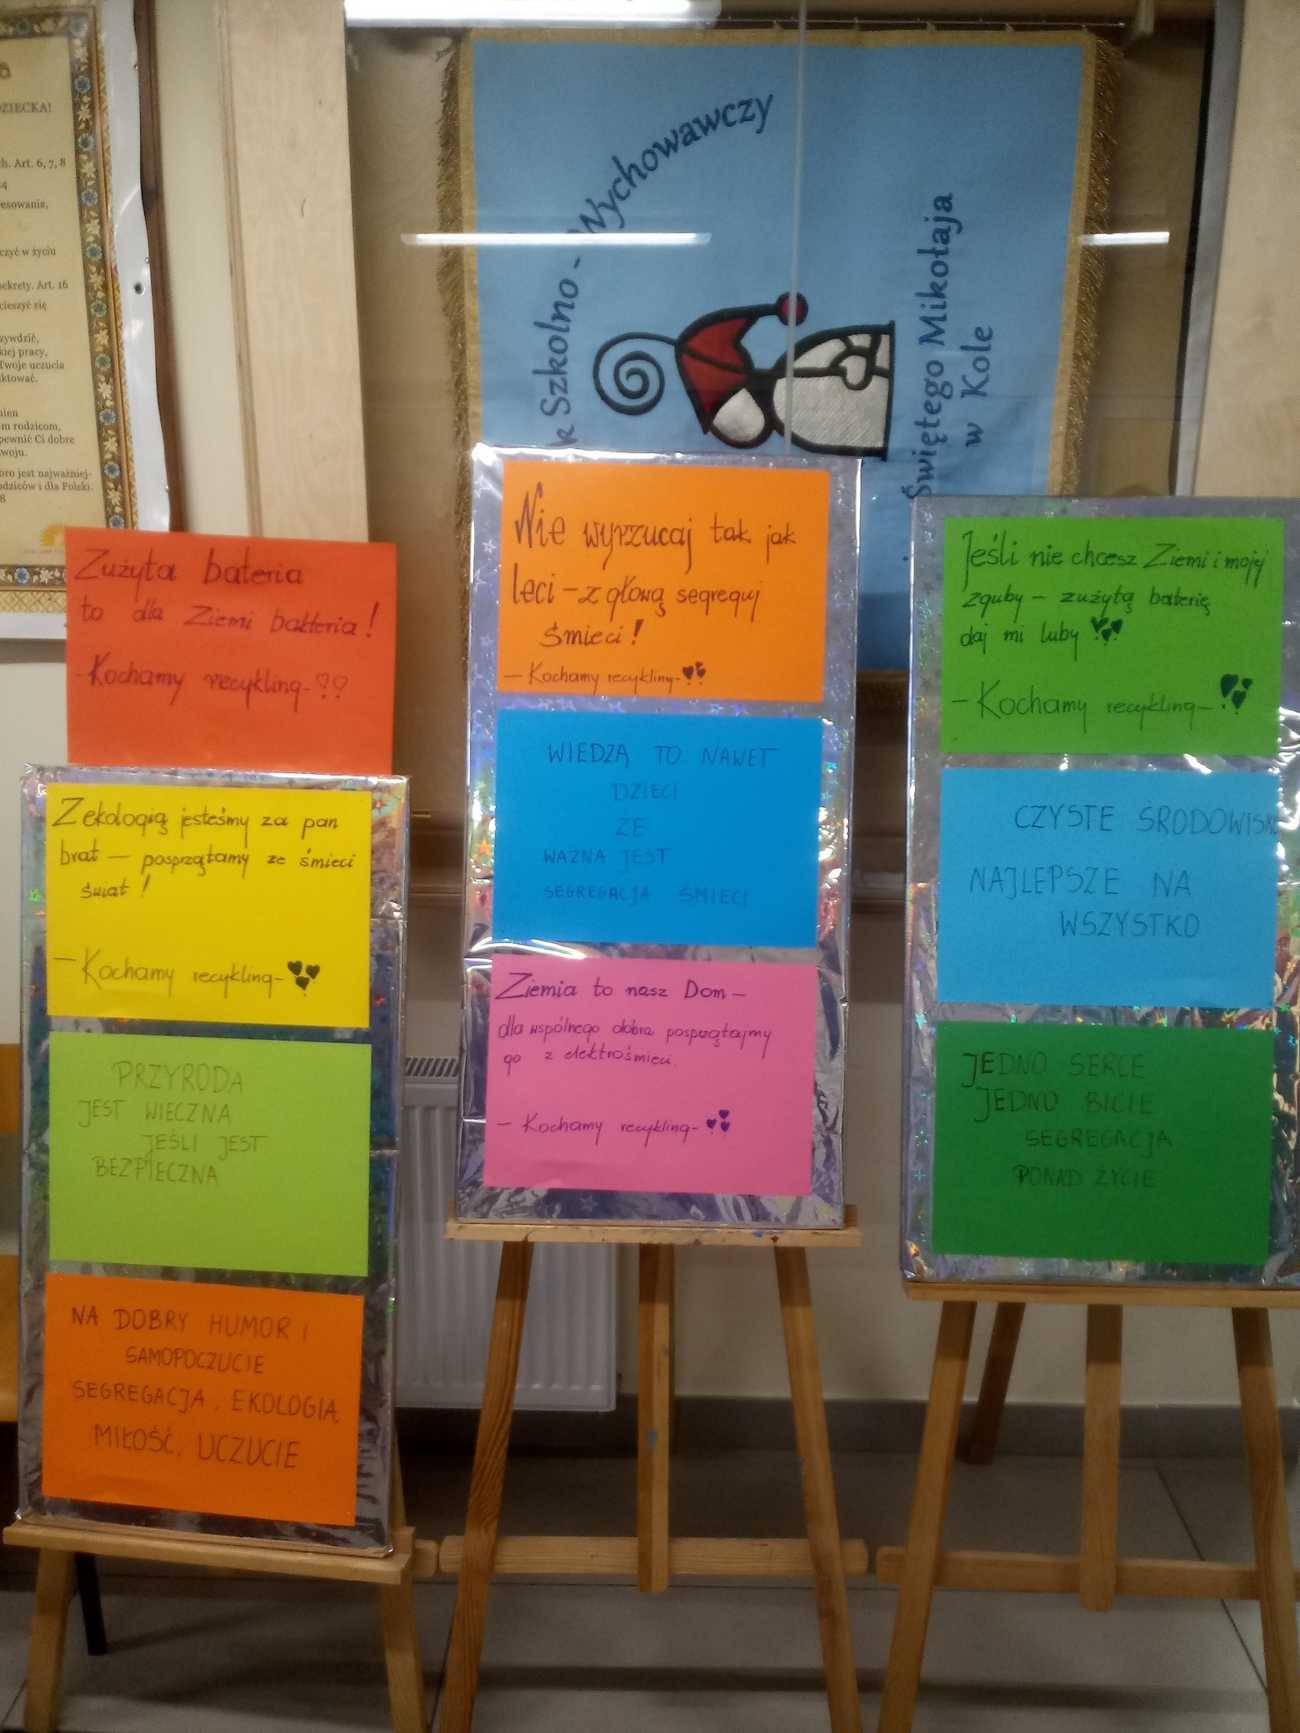 DZIECKA!
Art. 6, 7, 8
czyć w życiu
Art. 16
cieszyć się
kiej pracy,
Twoje uczucia
rodzicom,
pewnić Ci dobre
dobro jest najważniej-
rodziców i dla Polski.
Szkolno - Wychowawczy
Świętego Mikołaja
w Kole
Zużyta bateria
to dla Ziemi bakteria!
- Kochamy recykling -
Z ekologią jesteśmy za pan
brat — posprzątamy ze śmieci
świat!
- Kochamy recykling -
PRZYRODA
JEST WIECZNA
JEŚLI JEST
BEZPIECZNA
NA DOBRY HUMOR I
SAMOPOCZUCIE
SEGREGACJA, EKOLOGIA,
MIŁOŚĆ, UCZUCIE
Nie wyrzucaj tak jak
leci - z głową segreguj
śmieci!
- Kochamy recykling -
WIEDZĄ TO NAWET
DZIECI
ŻE
WAŻNA JEST
SEGREGACJA ŚMIECI
Ziemia to nasz Dom -
dla wspólnego dobra posprzątajmy
go z elektrośmieci.
- Kochamy recykling -
Jeśli nie chcesz Ziemi i mojej
zguby - zużytą baterię
daj mi luby
- Kochamy recykling -
CZYSTE ŚRODOWISKO
NAJLEPSZE NA
WSZYSTKO
JEDNO SERCE
JEDNO BICIE
SEGREGACJA
PONAD ŻYCIE